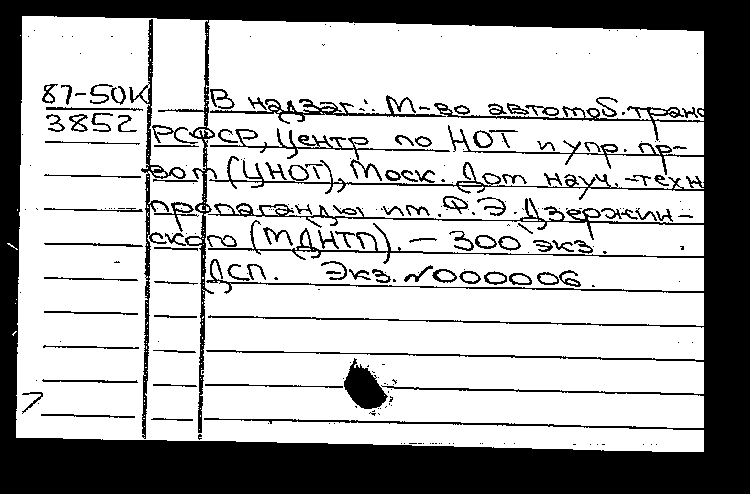 87-50К В надзаг.: М-во автомоб. транс
3852 РСФСР, Центр по НОТ и упр. пр-
вом (ЦНОТ), Моск. Дом науч.-техн
пропаганды им. Ф.Э. Дзержин-
ского (МДНТП). — 300 экз.
ДСП. Экз. №000006.
7